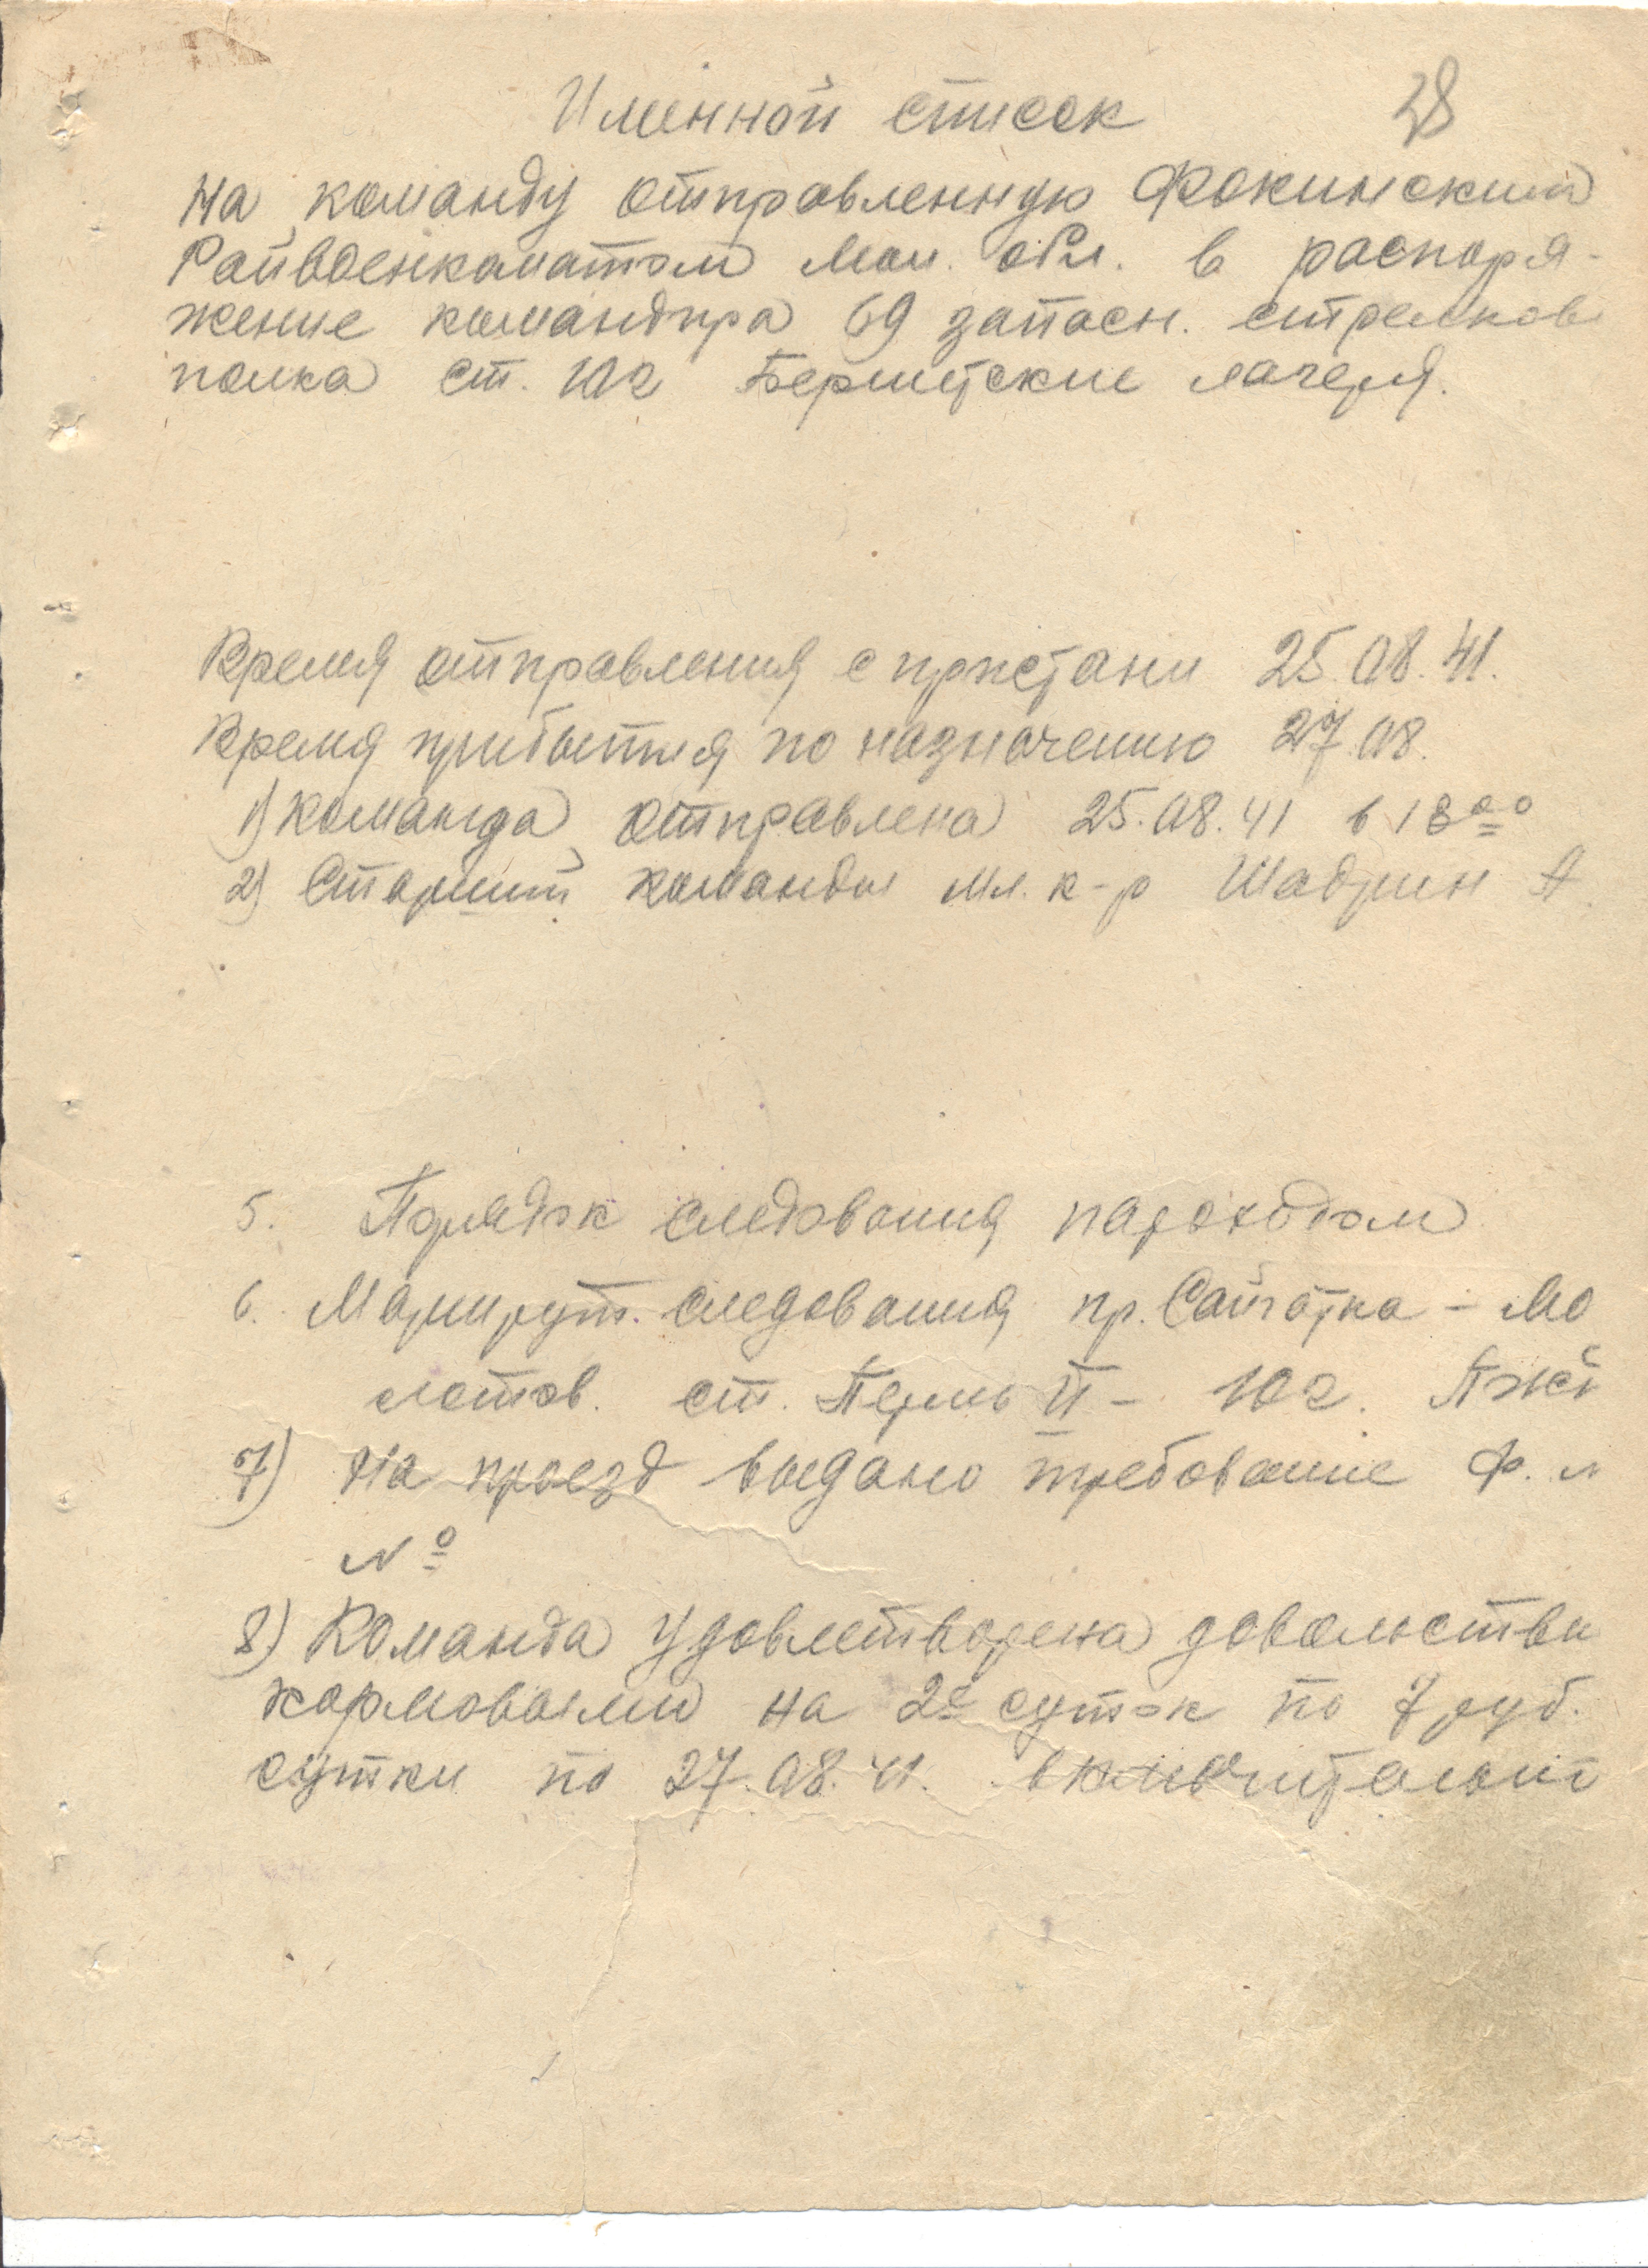 Именной список 28
на команду отправленную Фокинским
Райвоенкоматом Мол. обл. в распоря-
жение командира 69 запасн. стрелков
полка ст. Юг Бершетские лагеря.
Время отправления с пристани 25.08.41.
Время прибытия по назначению 27.08.
1) Команда отправлена 25.08.41 в 18ºº
2) Старший команды мл. к-р Шадрин А.
5. Порядок следования пароходом
6. Маршрут. следования пр. Сайгатка - Мо
лотов. ст. Пермь II - Юг.
7) На проезд выдано требование ф.
№
8) Команда удовлетворена довольстви
кормовыми на 2е суток по 7 руб.
сутки по 27.08.41. включительно